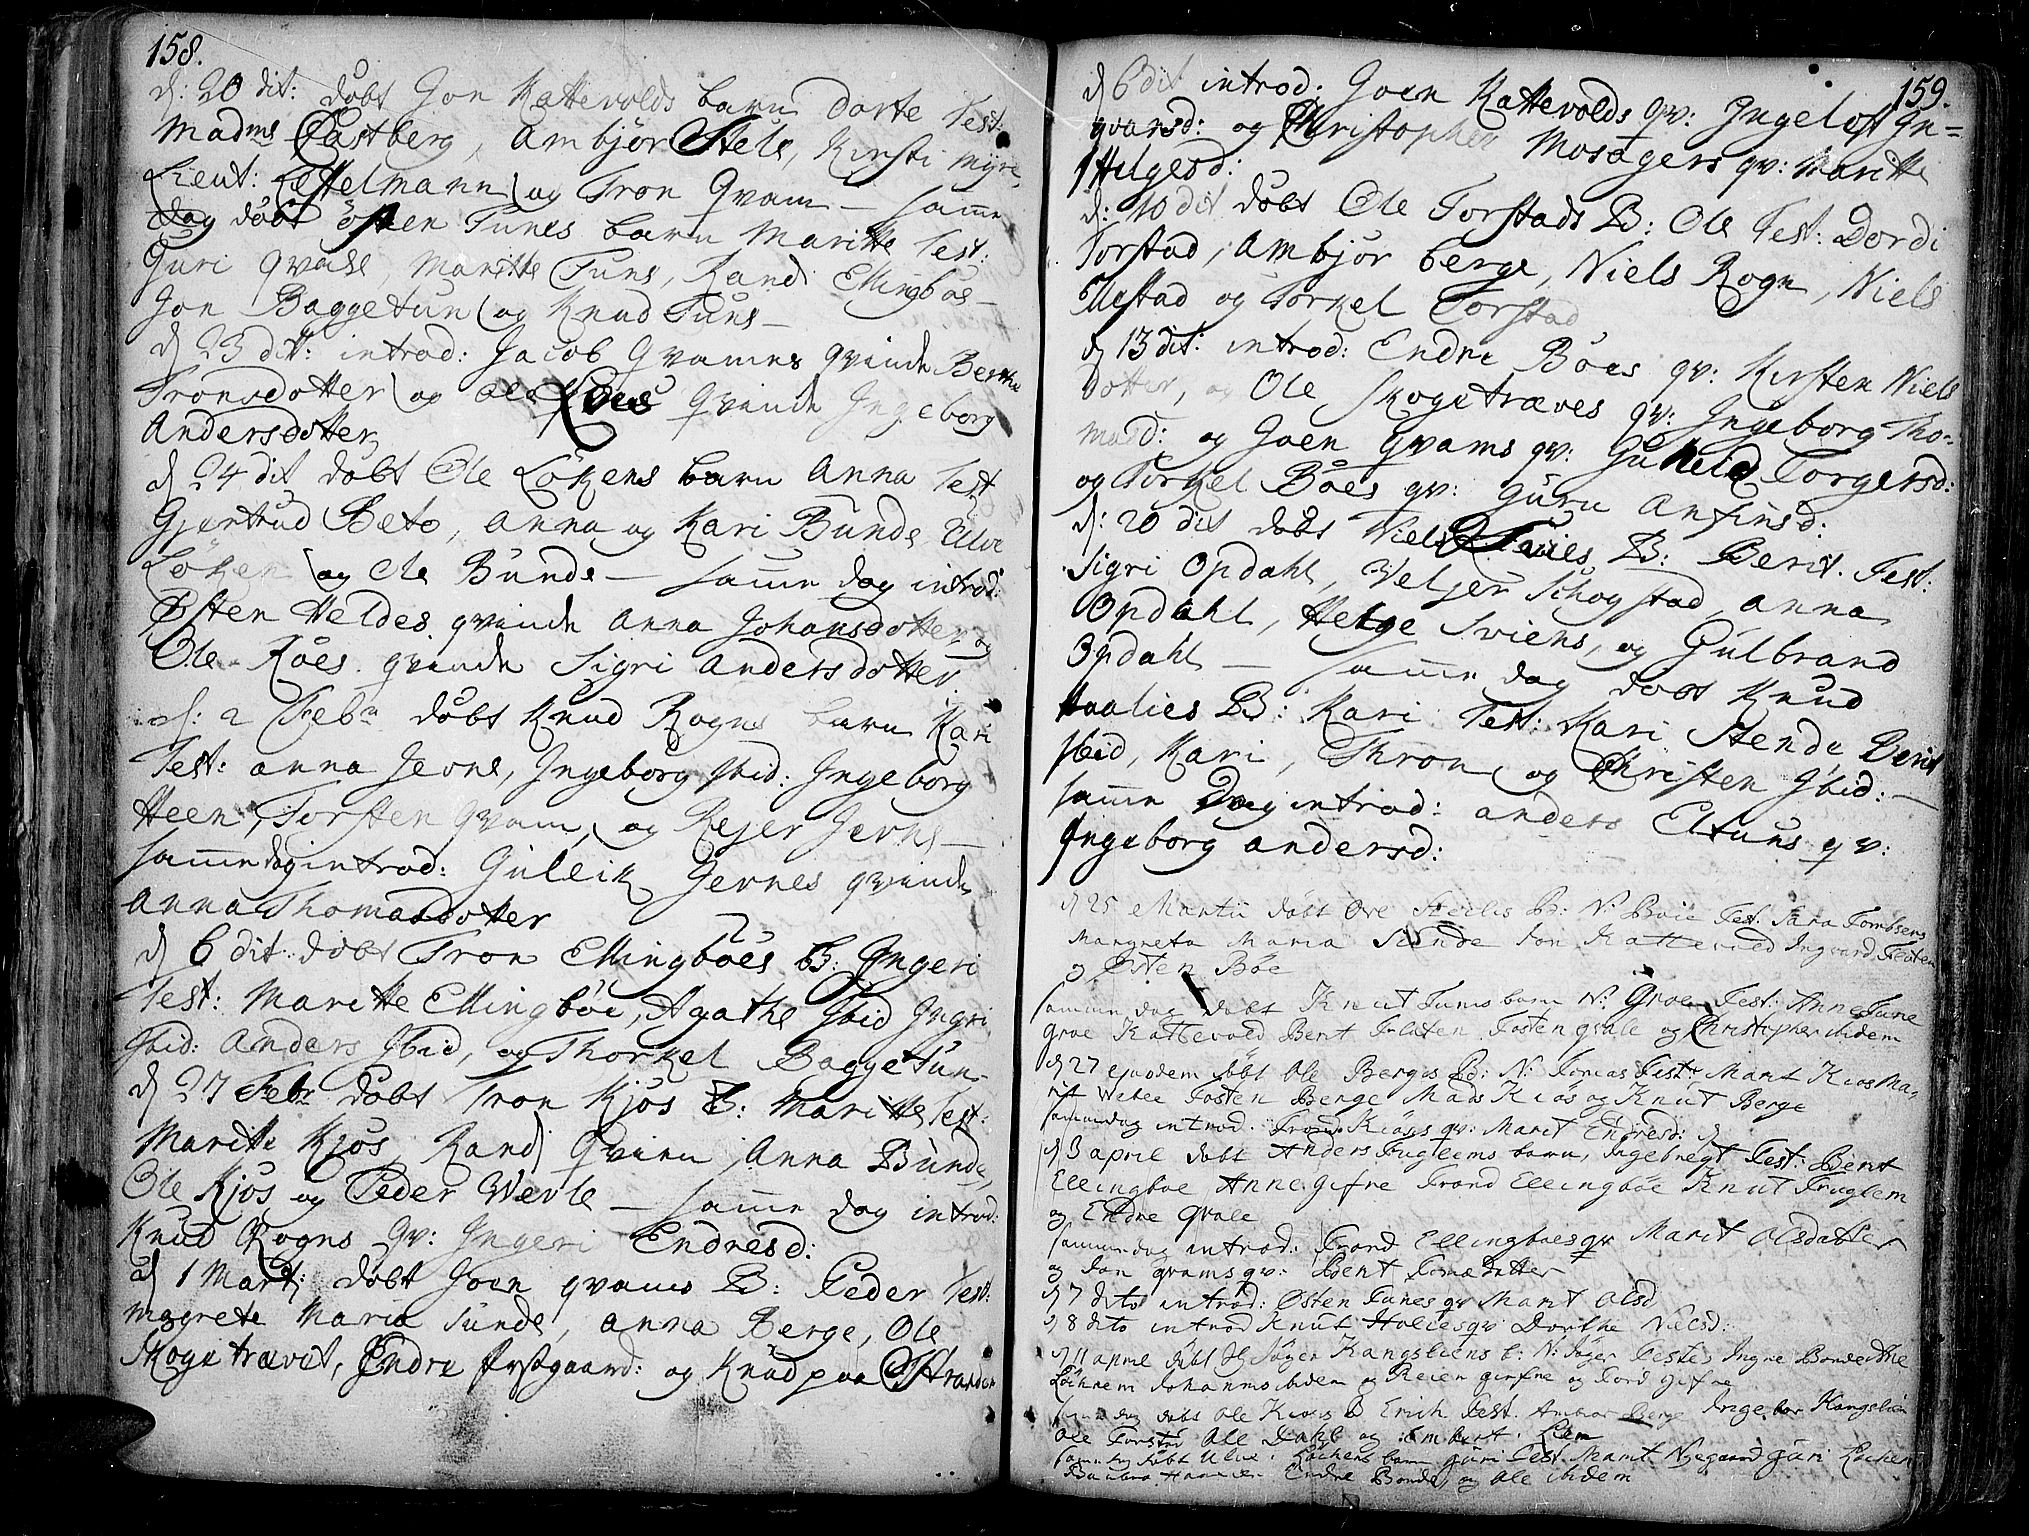 158.
d: 20 dit: døbt Jon Kattevolds barn Dorte Test:
Madms Castberg, Ambjør Stele, Kirsti Myre,
Lieut: Lesselmann og Tron Qvam — samme
dag døbt østen Tunes barn Maritte Test:
Guri Qvale, Maritte Tuns, Randi Ellingbøe —
Jon Baggetun og Knud Tuns —
d 23 dit: introd: Jacob Qvames qvinde Berthe
Tronsdotter og Ole qvinde Ingeborg
Andersdotter
d 24 dit døbt Ole Løkens barn Anna Test
Gjertrud Beto, Anna og Kari Bunde Ulve
Løken og Ole Bunde — samme dag introd:
Østen Heldes qvinde Anna Johansdotter og
Ole Røes qvinde Sigri Andersdotter
d: 2 Febr døbt Knud Rogns barn Kari
Test: Anna Jevne, Ingeborg Ibid: Ingeborg
Heen, Torsten Qvam, og Rejer Jevne —
samme dag introd: Gulleik Jevnes qvinde
Anna Thomasdotter
d 6 dit: døbt Tron Ellingbøes B: Ingeri
Test: Maritte Ellingbøe, Agathe Ibid Ingri
Ibid: Anders Ibid, og Thorkel Baggetun —
d 27 Febr døbt Tron Kjøs B: Maritte Test:
Maritte Kjøs, Randi Qvien, Anna Bunde,
Ole Kjøs og Peder Wevle — samme dag introd:
Knud Rogns qv: Ingeri Endresd:
d 1 Marti: døbt Joen qvams B: Peder Test:
Magrete Maria Sunde, Anna Berge, Ole
Skogetrævet, Endre Østgaard: og Knud paa Stranden
159.
d 6 dit introd: Joen Kattevolds qv: Ingelof In=
gvarsd: og Christopher Mosagers qv: Maritte
Helgesd:
d: 10 dit døbt Ole Torstads B: Ole Test: Dordi
Torstad, Ambjør berge, Niels Rogn, Niels
Ulestad og Torkel Torstad
d 13 dit: introd: Endre Bøes qv: Kirsten Niels
dotter, og Ole Skogetræves qv: Ingeborg Tho-
masd: og Joen Qvams qv: Gunild Torgersd:
og Torkel Bøes qv: Guru Anfinsd:
d: 20 dit døbt Niels B: Berit. Test:
Sigri Opdahl, Veljer Schogstad, Anna
Opdahl, Helge Sviens, og Gulbrand
Opdahl — samme dag døbt Knud
Haalies B: Kari Test: Kari Stende Berit
Ibid, Kari, Thron og Christen Ibid: —
samme Dag introd: Anders Eltuns qv:
Ingeborg Andersd:
d 25 Martii døbt Ove Steeles B: N: Boie Test: Sara Tombsens
Margreta Maria Sunde Jon Kattevold Ingvard Fleten
og Østen Bøe
samme dag døbt Knut Tuns barn N: Groe Test: Anne Tune
Groe Kattevold Berit Fleten Tosten qvale og Christopher ibidem
d 27 ejusdem døbt Ole Berges B: N: Tomas Test: Marit Kiøs Ma-
rit Weble Tosten Berge Mads Kiøs og Knut Berge
samme dag introd: Trond Kiøses qv: Marit Endresd:
d 3 april døbt Anders Fuglems barn, Ingebregt Test: Berit
Ellingbøe Anne Gifne Trond Ellingbøe Knut Fuglem
og Endre Qvale
samme dag introd: Trond Ellingbøes qv Marit Olsdatter
og Jon qvams qv: Berit datter
d 7 dito introd: Østen Tunes qv Marit Olsd
d 8 dito introd Knut Holies qv Dorthe Nielsd:
d 11 april døbt Søger Kangsliens b: N: Søger Testes Ingre Bonde Ane
Løchnem Johannes ibidem og Reier girfne og Tord Gifne
samme dag døbt Ole Kiøs B Erich Test. Ambior Berge Ingebor Kangslien
Ole Torstad Ole Dahl og Lem
samme dag døbt Ulve Løckens barn Guri Test Marit Nyegaard Guri Løchen
Barbra Endre Bonde og Ole ibidem